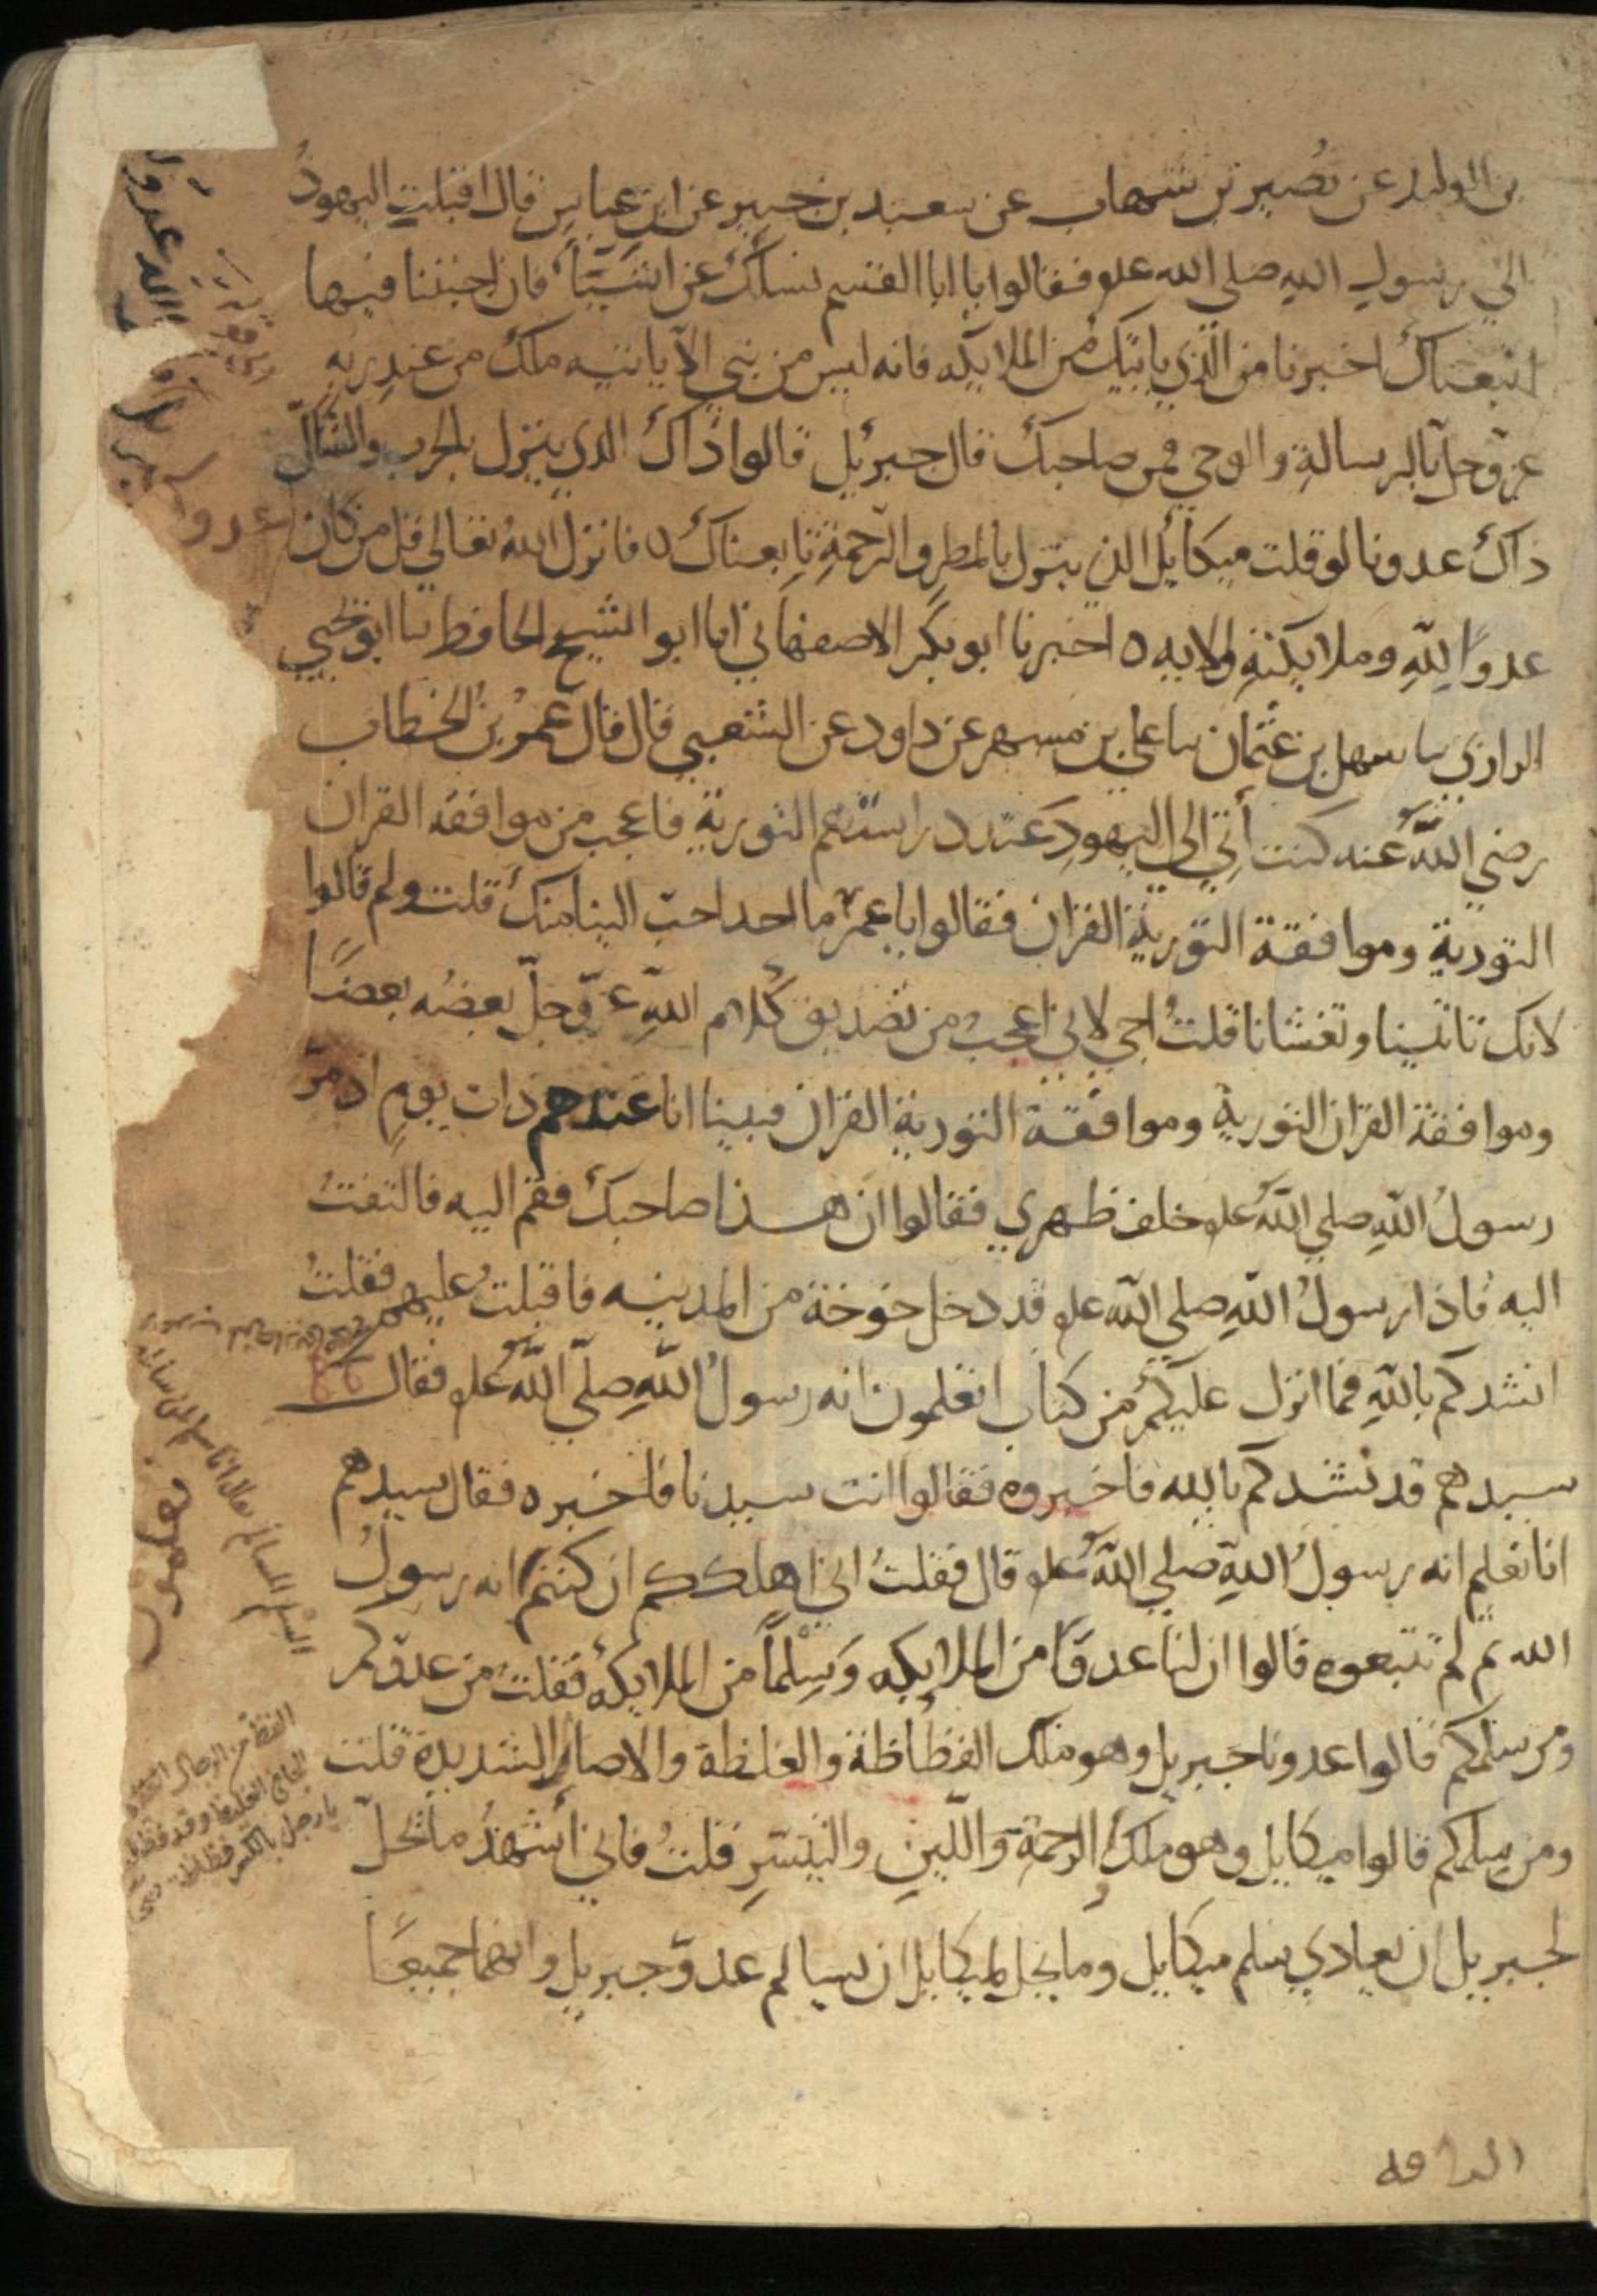 بن الوليد عن نصير بن شهاب عن سعيد بن جبير عن ابن عباس قال اقبلت اليهودُ
الي رسول الله صلى الله علو فقالوا يا ابا القسم نسألك عن اشيَآء فان اجبتنا فيها
اتبعناك اخبرنا من الذي ياتيك من الملايكه فانه ليس من نبي الا ياتيه ملك من عند ربه
عز وجل بالرسالةِ والوحي فمن صاحبك قال جبريل قالوا ذاك الذي ينزل بالحرب والقتال
ذاك عدونا لو قلت ميكائل الذي ينزل بالمطر والرحمة تابعناك ٥ فانزل الله تعالي قل من كان
عدوًا لِلّهِ وملايكتهِ والايه ٥ اخبرنا ابو بكر الاصفهاني انا ابو الشيخ الحافظ نا ابو يحيي
الرازي نا سهل بن عثمان نا علي بن مسهر عن داود عن الشعبي قال قال عمر بن الخطاب
رضي اللّه عنه كنت أتي الى اليهودِ عند دراستهم التورية فاعجب من موافقه القران
التورية وموافقة التورية القران فقالوا يا عمر ما احد احب الينا منك قلت ولم قالوا
لانك تاتينا وتغشانا قلتُ اجي لاني اعجب من تصديق كلام اللّهِ عز وجلّ بعضُه بعضًا
وموافقة القران التورية وموافقة التورية القران فبينا انا عندهم ذات يومٍ اذ مرّ
رسولُ اللّهِ صلي اللّه علو خلف ظهري فقالوا ان هذا صاحبك فقم اليه فالتفتُ
اليه فاذا رسولُ اللّهِ صلى اللّه علو قد دخل خوخة من المدينه فاقبلتُ عليهم فقلتُ
انشدكم باللّهِ فما انزل عليكم من كتاب اتعلمون انه رسولُ اللّهِ صلّي اللّه علو فقال
سيدهم قد نشدكم بالله فاخبروه فقالوا انت سيدنا فاخبره فقال سيدهم
انا نعلم انه رسولُ اللّهِ صلي اللّه علو قال فقلتُ انى اهلككم ان كنتم انه رسولُ
الله ثم لم تتبعوه قالوا ان لنا عدوًّا من الملايكه وَسِلمًا من الملايكه فقلتُ من عدوّكم
ومن سلمكم قالوا عدونا جبريل وهو ملك الفظاظة والغلظة والاصار الشديدة قلت
ومن سلمكم قالوا ميكايل وهو ملك الرحمة واللّينِ والتيسّرِ قلتُ فاني أشهدُ ما يحلّ
لجبريل ان يعادي سلم ميكايل وما يحل لميكايل ان يسالم عدوّ جبريل وانهما جميعًا
عدوا